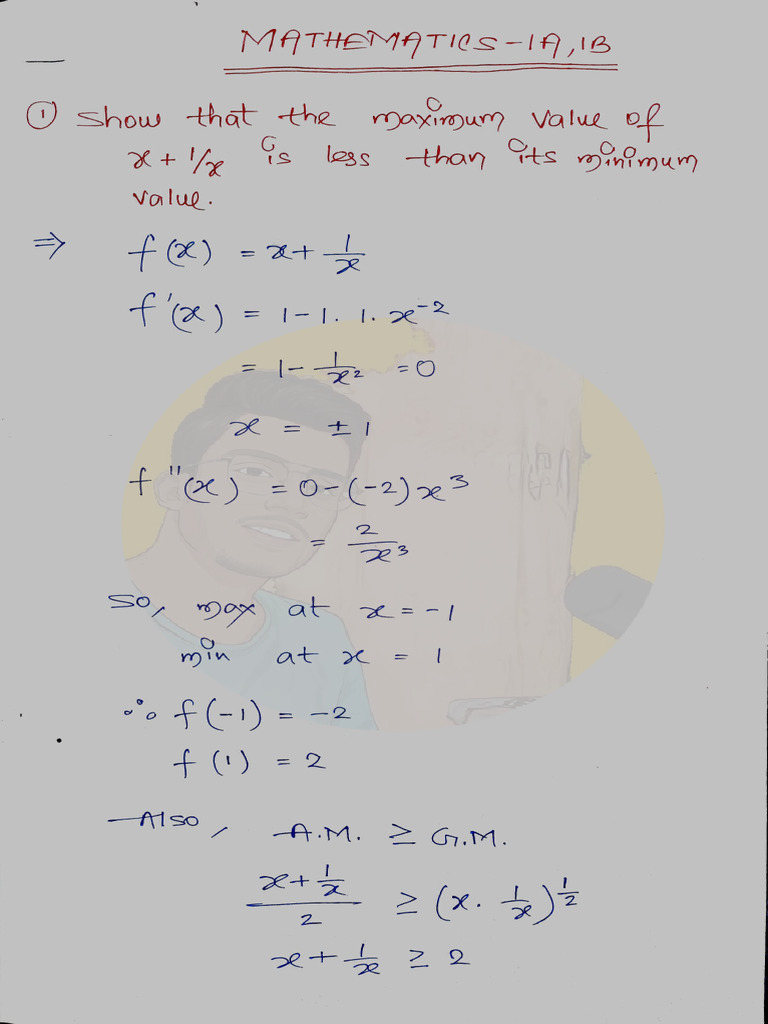 MATHEMATICS-1A,1B
① Show that the maximum value of
x + 1/x is less than its minimum
value.
⇒ f(x) = x + 1/x
f'(x) = 1-1. 1. x^-2
= 1 - 1/x² = 0
x = ± 1
f''(x) = 0-(-2)x³
= 2/x³
So, max at x = -1
min at x = 1
∴ f(-1) = -2
f(1) = 2
Also, A.M. ≥ G.M.
(x + 1/x)/2 ≥ (x. 1/x)^1/2
x + 1/x ≥ 2